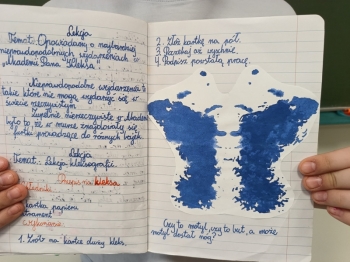 Lekcja
Temat: Opowiadamy o najbardziej
nieprawdopodobnych wydarzeniach w
Akademii Pana Kleksa.
Nieprawdopodobne wydarzenia to
takie które nie mogą wydarzyć się w
świecie rzeczywistym.
Zupełnie nierzeczywiste w Akademii
było to, że w murze znajdowały się
furtki prowadzące do różnych bajek.
Lekcja
Temat: Lekcja kleksografii.
Przepis na kleksa
kartka papieru
atrament
Wykonanie
1. Zrób na kartce duży kleks.
2. Złóż kartkę na pół.
3. Poczekaj aż wyschnie.
4. Podpisz powstałą pracę.
Czy to motyl, czy to but, a może
motyl dostał nóg?